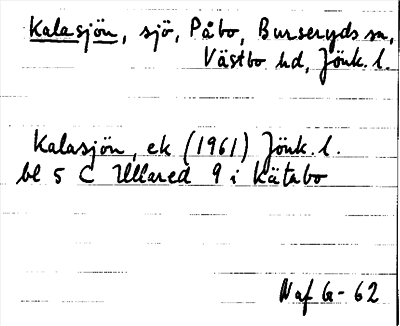 Kalasjön, sjö, Påbo, Burseryds sn,
Västbo hd, Jönk. l.
Kalasjön, ek (1961) Jönk. l.
bl 5 C Ullared 9 i Kätabo
Naf G- 62